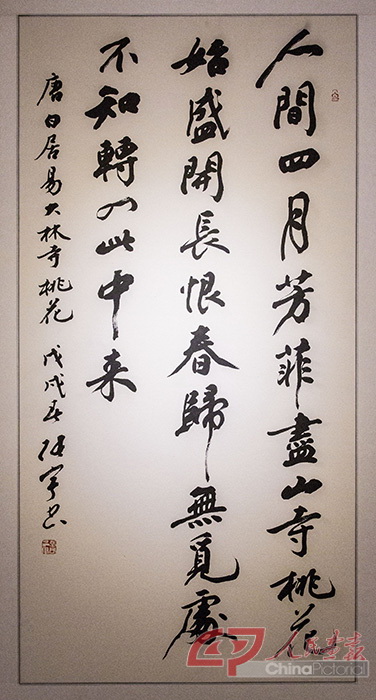 人間四月芳菲盡山寺桃花
始盛開長恨春歸無覓處
不知轉入此中来
唐白居易大林寺桃花 戊戌春 任宇书
人民画报
ChinaPictorial